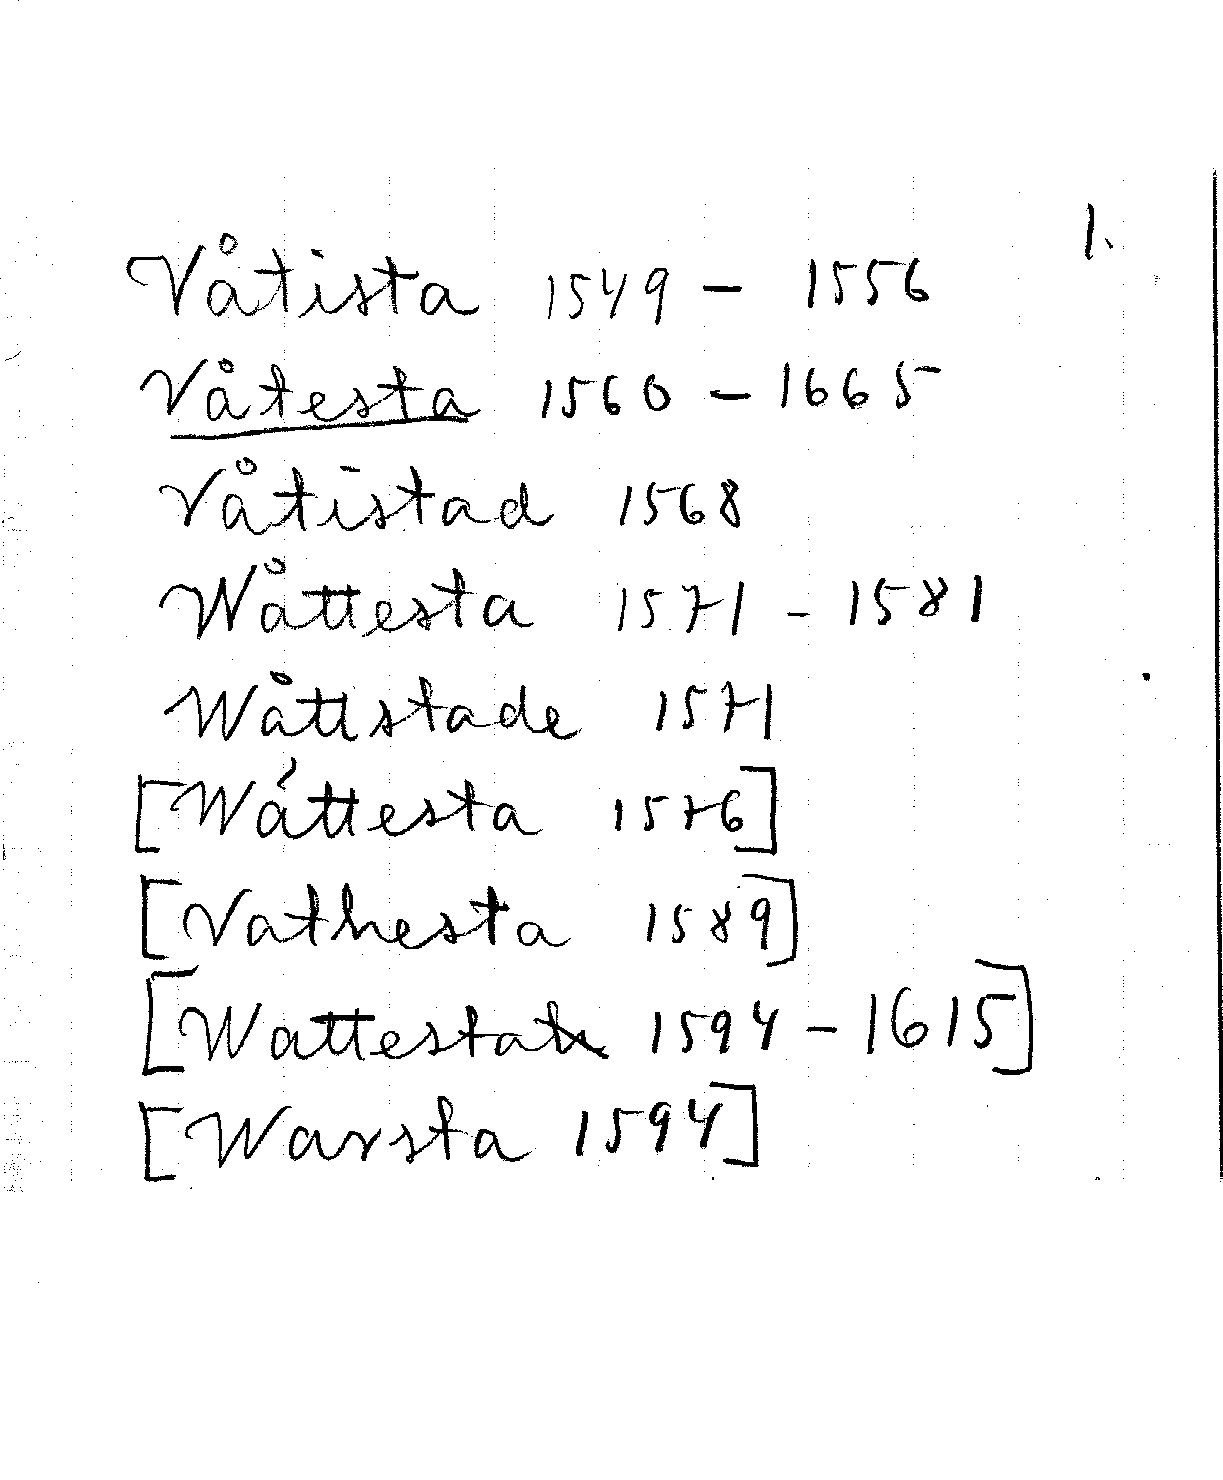 1.
Våtista 1549 – 1556
Våtesta 1560 – 1665
Våtistad 1568
Wåttesta 1571 – 1581
Wåttstade 1571
[Wåttesta 1576]
[Vathesta 1589]
[Wattesta 1594 – 1615]
[Warsta 1594]